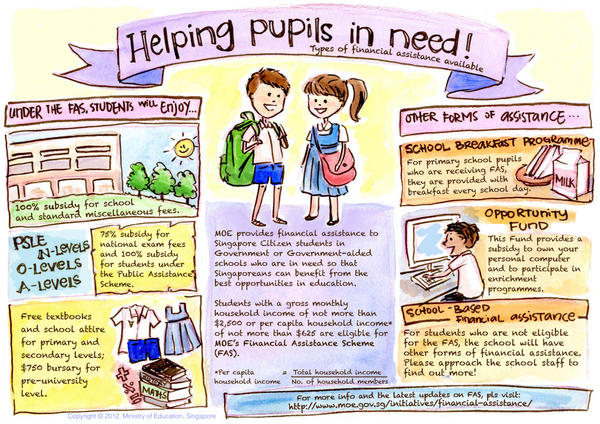 Helping pupils in need!
Types of financial assistance available
UNDER THE FAS, STUDENTS will Enjoy...
100% subsidy for school
and standard miscellaneous fees.
PSLE
N-LEVELS
O-LEVELS
A-LEVELS
75% subsidy for
national exam fees
and 100% subsidy
for students under
the Public Assistance
Scheme.
Free textbooks
and school attire
for primary and
secondary levels;
$750 bursary for
pre-university
level.
MATHS
MOE provides financial assistance to
Singapore Citizen students in
Government or Government-aided
schools who are in need so that
Singaporeans can benefit from the
best opportunities in education.
Students with a gross monthly
household income of not more than
$2,500 or per capita household income*
of not more than $625 are eligible for
MOE's Financial Assistance Scheme
(FAS).
*Per capita = Total household income
household income No. of household members
OTHER FORMS OF ASSISTANCE...
SCHOOL BREAKFAST PROGRAMME
For primary school pupils
who are receiving FAS,
they are provided with
breakfast every school day.
MILK
OPPORTUNITY
FUND
This Fund provides a
subsidy to own your
personal computer
and to participate in
enrichment
programmes.
SCHOOL-BASED
Financial ASSISTANCE
For students who are not eligible
for the FAS, the school will have
other forms of financial assistance.
Please approach the school staff to
find out more!
For more info and the latest updates on FAS, pls visit:
http://www.moe.gov.sg/initiatives/financial-assistance/
Copyright © 2012, Ministry of Education, Singapore